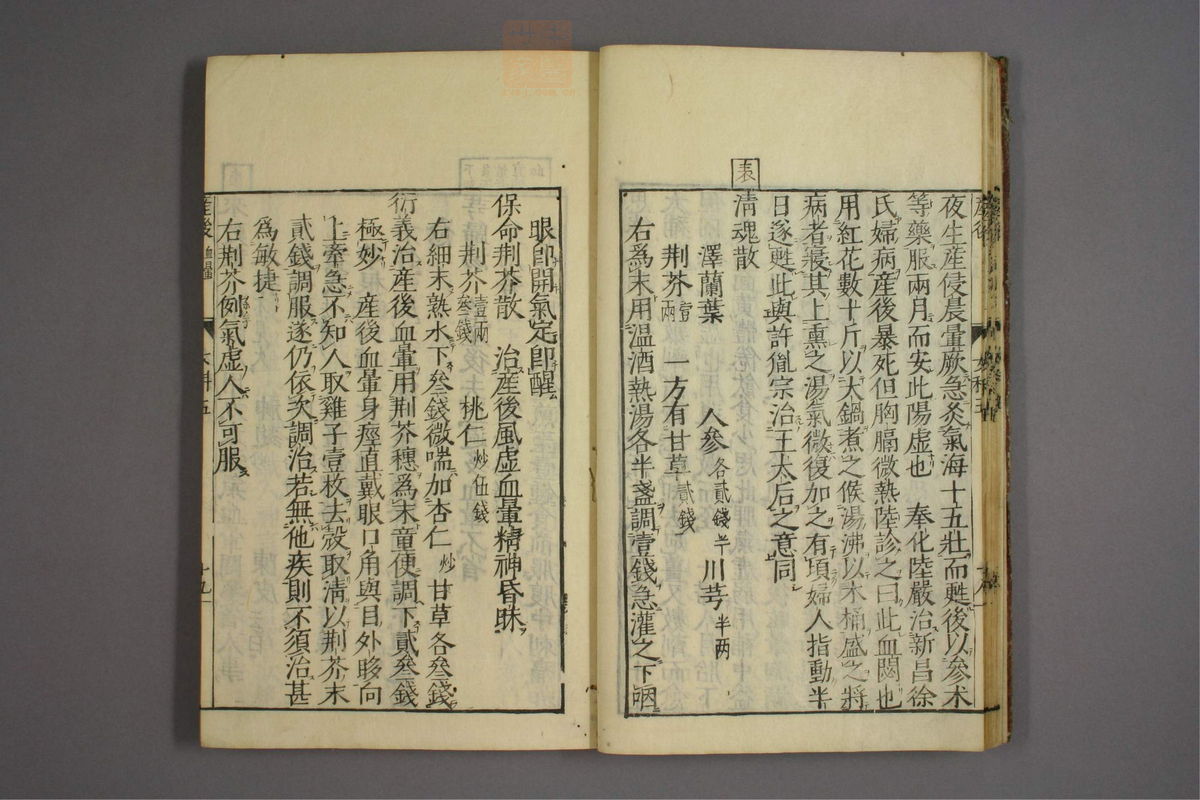 夜生産侵晨暈厥急灸氣海十五壯而甦後以參术
等藥服兩月而安此陽虛也　奉化陸嚴治新昌徐
氏婦病産後暴死但胸膈微熱陸診之曰此血悶也
用紅花數十斤以大鍋煮之候湯沸以木桶盛之將
病者寢其上熏之湯氣微復加之有頃婦人指動半
日遂甦此與許胤宗治王太后之意同
表
清魂散
澤蘭葉　人參各貳錢半　川芎半两
荆芥壹兩　一方有甘草貳錢
右爲末用溫酒熱湯各半盞調壹錢急灌之下咽
眼卽開氣定卽醒
保命荆芥散　治産後風虛血暈精神昏昧
荆芥壹兩叁錢　桃仁炒伍錢
右細末熟水下叁錢微喘加杏仁炒甘草各叁錢
衍義治産後血暈用荆芥穗爲末童便調下貳叁錢
極妙　産後血暈身痙直戴眼口角與目外眵向
上牽急不知人取雞子壹枚去殼取淸以荆芥末
貳錢調服遂仍依次調治若無他疾則不須治甚
爲敏捷
右荆芥例氣虛人不可服
産後